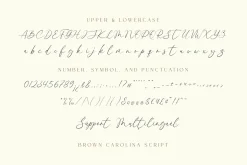 UPPER & LOWERCASE
ABCDEFGHIJKLMNOPQRSTUVWXYZ
abcdefghijklmnopqrstuvwxyz
NUMBER, SYMBOL, AND PUNCTUATION
0123456789
Support Multilingual
BROWN CAROLINA SCRIPT